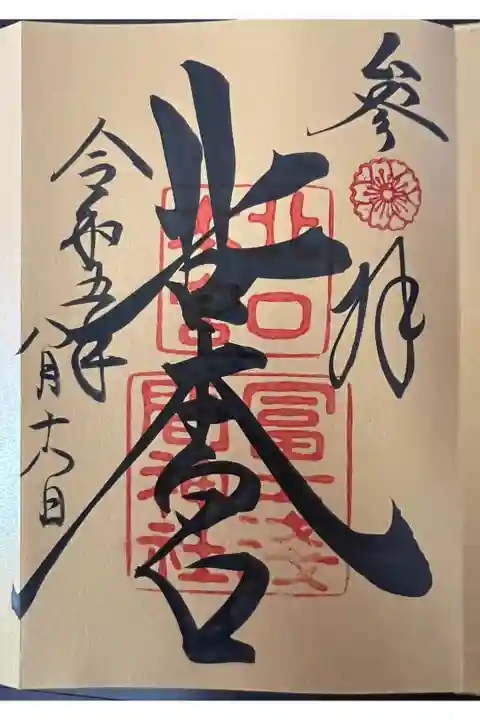 參拝
北口本宮
令和五年
八月十六日
北口
本宮
冨士淺
間神社